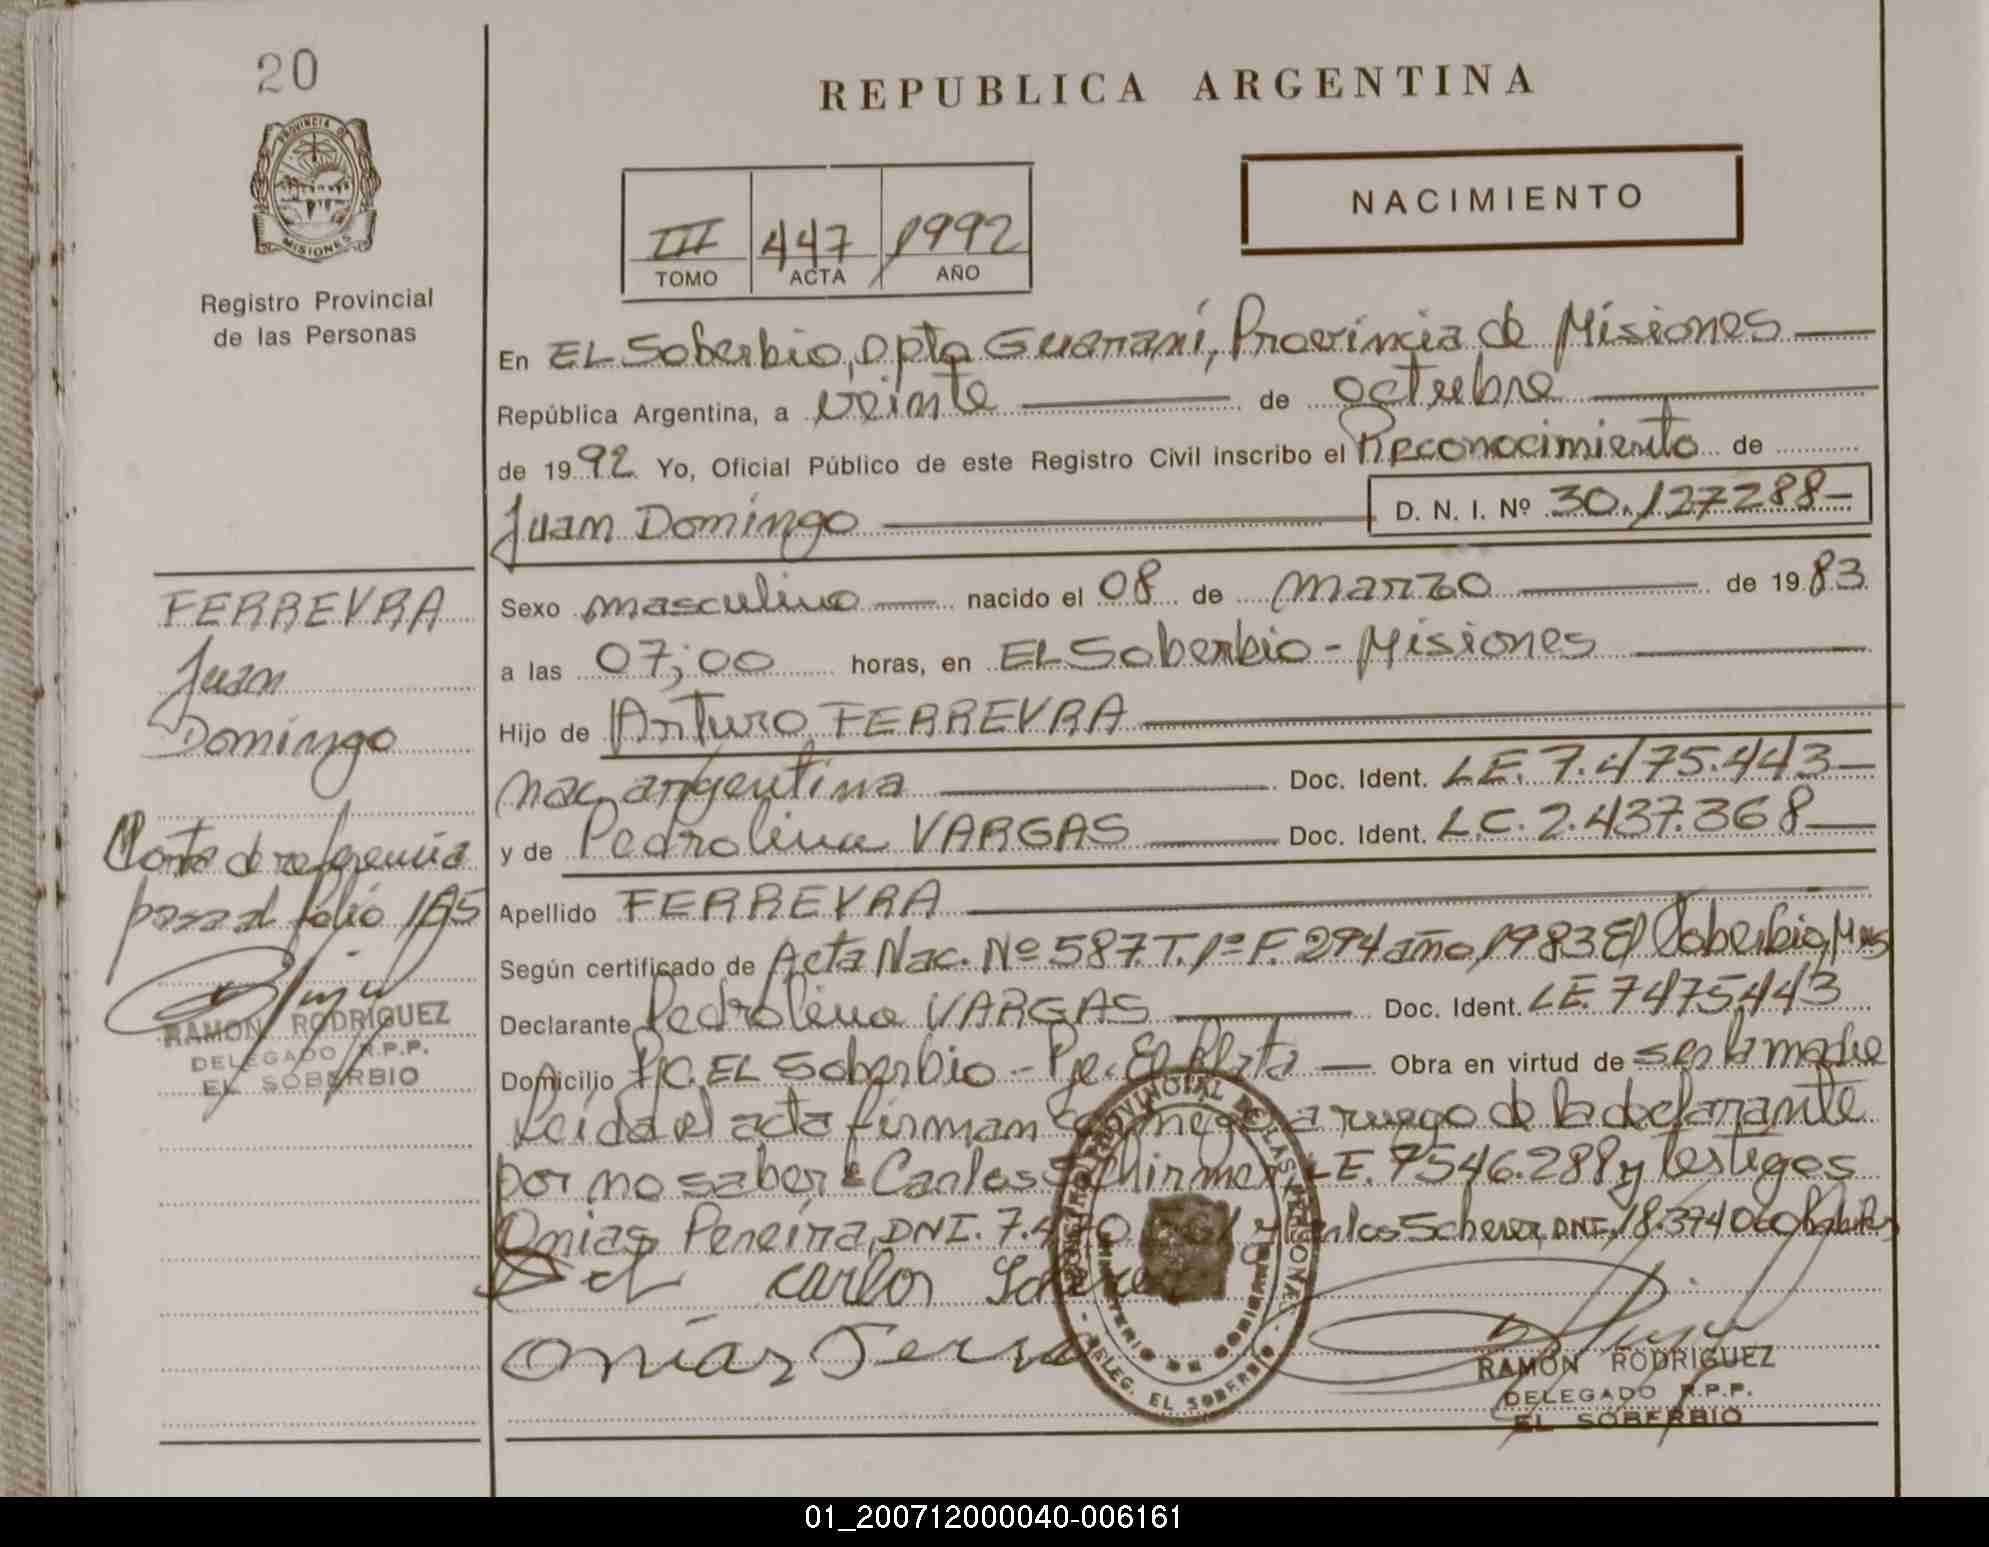 20
PROVINCIA DE
MISIONES
Registro Provincial
de las Personas
REPUBLICA ARGENTINA
NACIMIENTO
III 447 1992
TOMO ACTA AÑO
En EL Soberbio, Dpto Guaraní, Provincia de Misiones
República Argentina, a veinte de octubre
de 1992 Yo, Oficial Público de este Registro Civil inscribo el Reconocimiento de
Juan Domingo D. N. I. Nº 30.127288-
Sexo masculino nacido el 08 de marzo de 1983
a las 07;00 horas, en EL Soberbio - Misiones
Hijo de Arturo FERREYRA
nac argentina Doc. Ident. L.E. 7.475.443-
y de Pedrolina VARGAS Doc. Ident. L.C. 2.437.368
Apellido FERREYRA
Según certificado de Acta Nac. Nº 587. T. 1º F. 294 año 1983 El Soberbio, Mnes
Declarante Pedrolina VARGAS Doc. Ident. LE. 7475443
Domicilio EL Soberbio - Pje. El Plata Obra en virtud de ser la madre
Leida el acta firman conmigo a ruego de la declarante
por no saber Carlos Schirmer LE. 7546.288 y testigos
Onias Pereira, DNI. 7.4 Carlos Scherer, DNI. 18.374
Carlos Scherer
Onias Pereira
FERREYRA
Juan
Domingo
Nota de referencia
pasa al folio 185
RAMON RODRIGUEZ
DELEGADO R.P.P.
EL SOBERBIO
REGISTRO PROVINCIAL DE LAS PERSONAS
MINISTERIO DE GOBIERNO
DELEG. EL SOBERBIO
RAMON RODRIGUEZ
DELEGADO R.P.P.
EL SOBERBIO
01_200712000040-006161